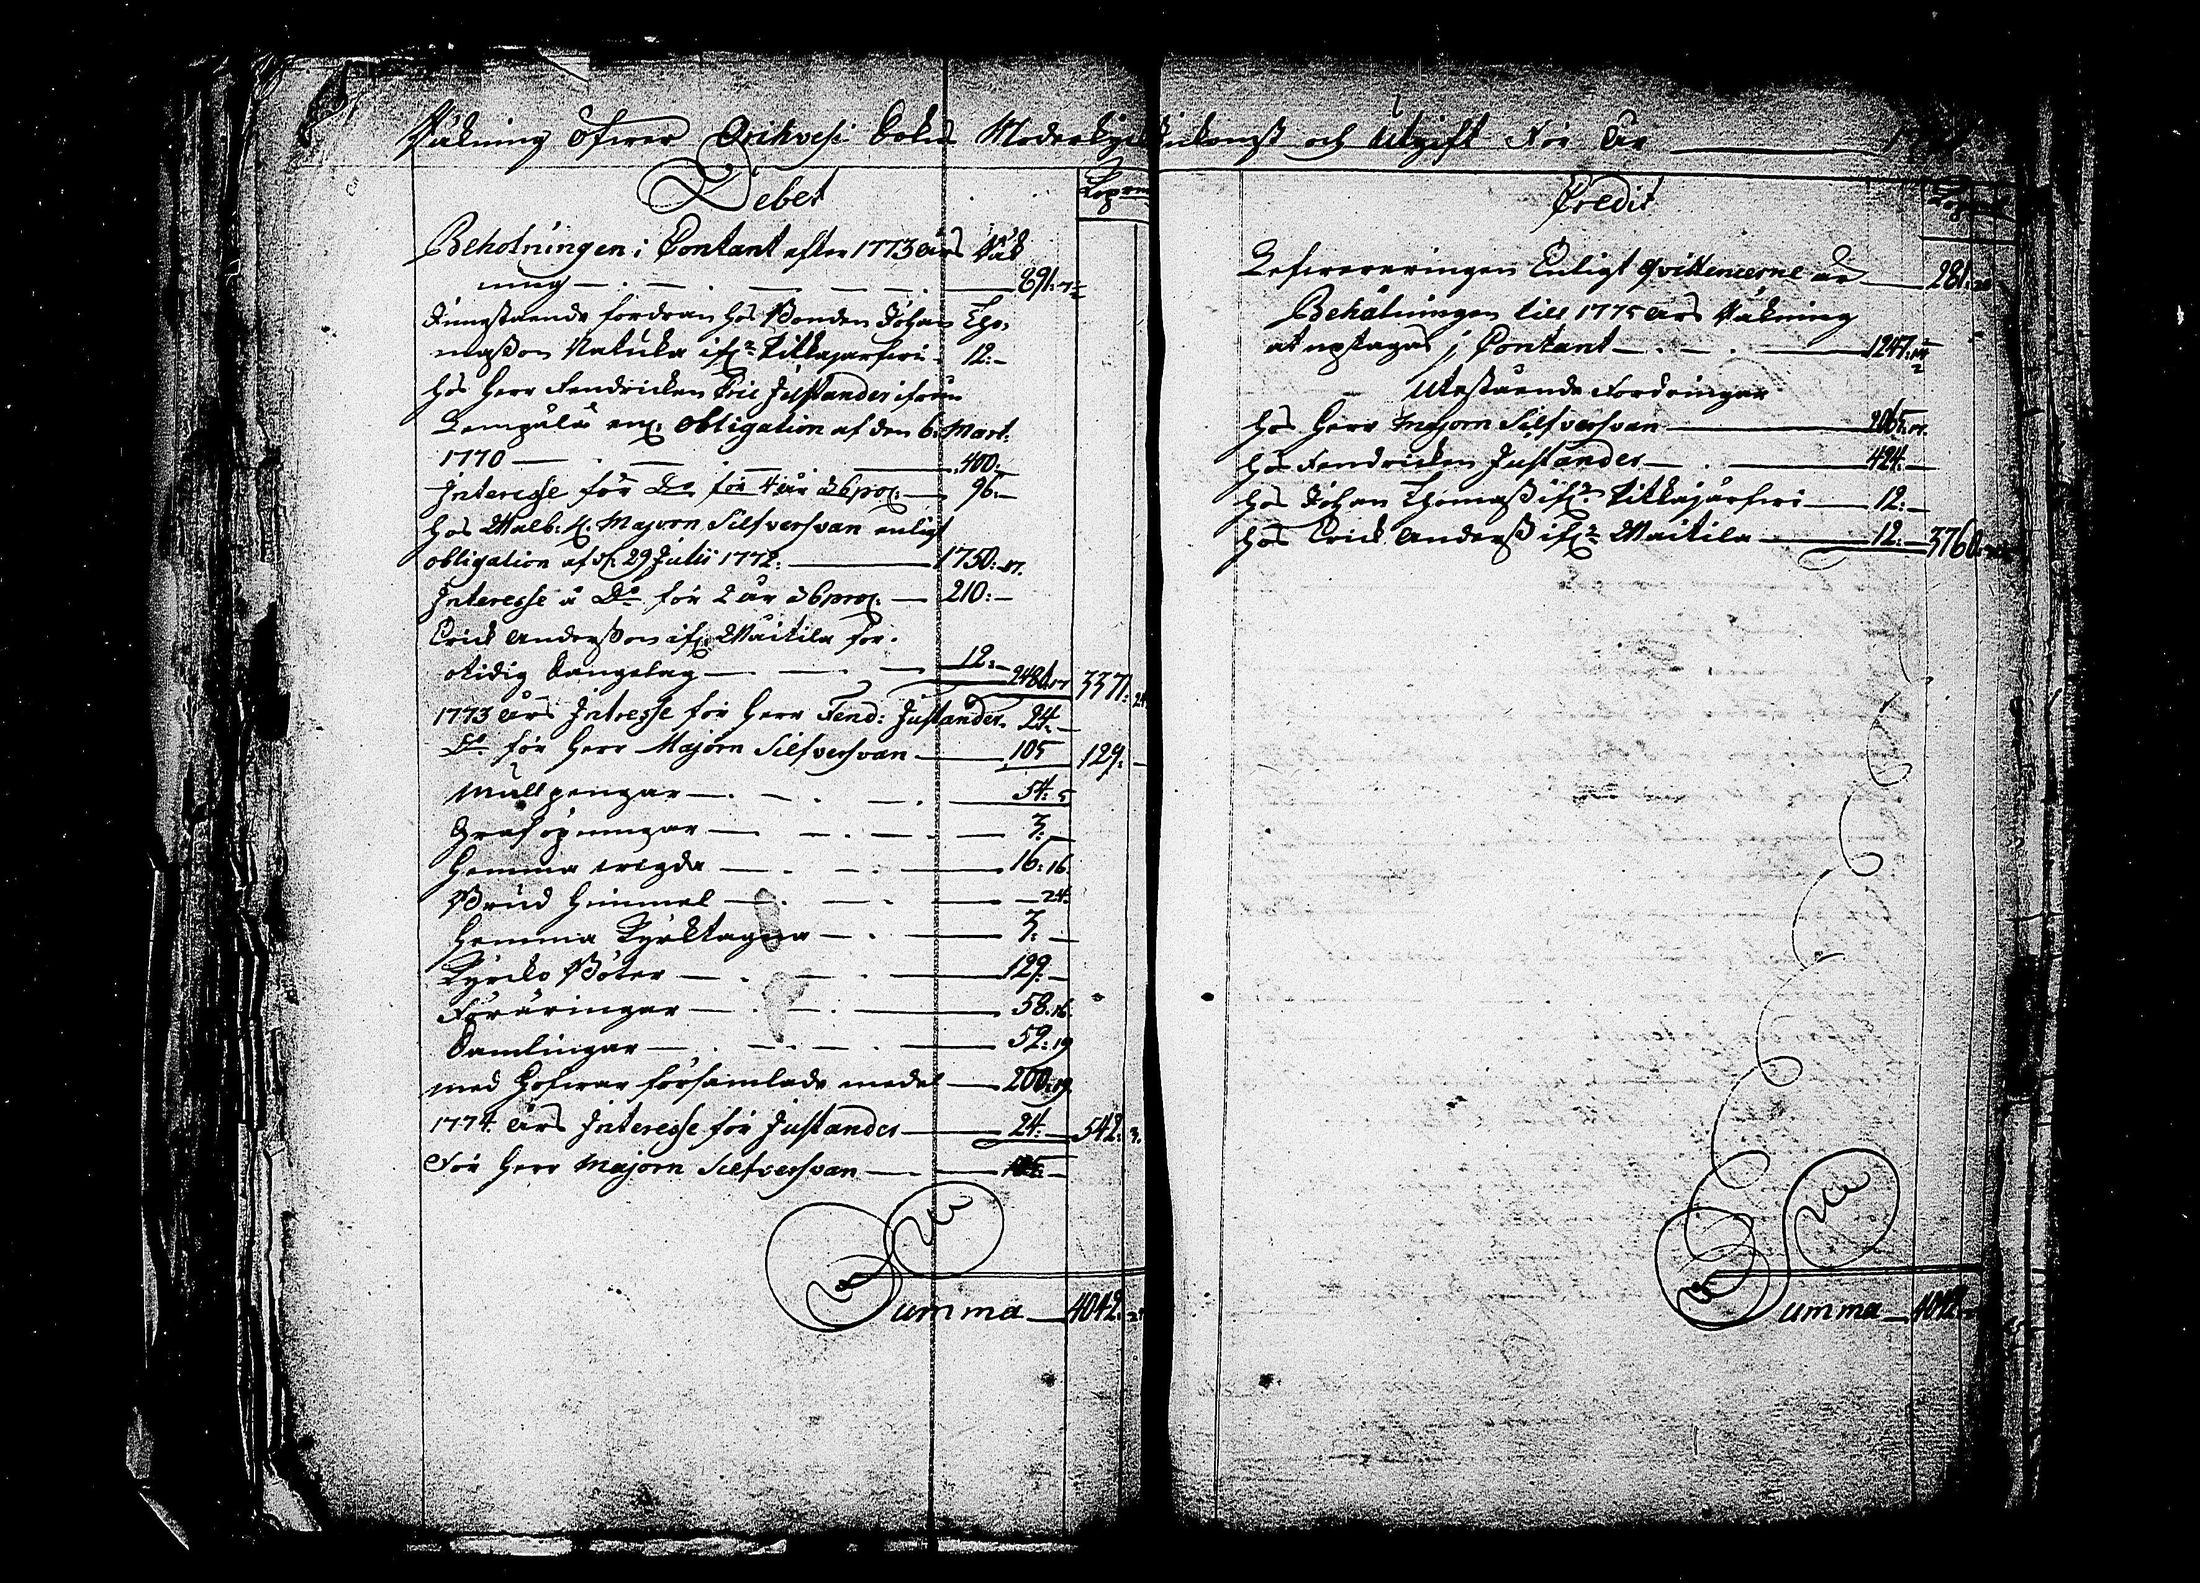 Räkning öfwer Orihvesi Sokns Moderkyrck Inkomst och Utgift För År
Debet
Kop:mt
Behålningen i Contant efter 1773 års Räk
ning 891:7
Innestående fordran hos Bonden Johan Tho:
masson Natuka if:n Pitkajärfwi 12:—
hos Herr Fendricken Eric Justander ifrån
Lempälä enl. obligation af den 6. Mart:
1770 400:—
Interesse för D:o för 4 år à 6 proc. 96:—
hos Walb: H. Majorn Silfversvan enligt
obligation af d. 29 Julii 1772: 1750:17.
Interesse à D:o för 2 år à 6 proc. 210:—
Erick Andersson if: Waitila för
otidig Sängelag 12:— 2480:17 3371:24
1773 års Intresse för Herr Fend: Justander. 24:—
D:o för Herr Majorn Silfversvan 105 129:—
Mullpengar 54:5
Graföpningar 3:—
Hemma wigda 16:16.
Brud Himmel —24.
Hemma Kyrktagna 3:—
Kyrcko Böter 129:—
Föräringar 58:16.
Samlingar 52:19
Med Hofwar församlade medel 200:19.
1774 års Interesse för Justander 24:— 542:3.
För Herr Majorn Silfversvan 105:—
Summa 4042:
Credit
Lefwereringen Enligt Qvittencerne är 281:
Behålningen till 1775 års Räkning
at uptagas j Contant 1247:14
Utestående Fordringar
hos Herr Majorn Silfversvan 2065:17.
hos Fendricken Justander 424:—
hos Johan Thomass: if:n Pitkajärfwi 12:—
hos Erick Anderss: if:n Waitila 12:— 3760:
Summa 4042: